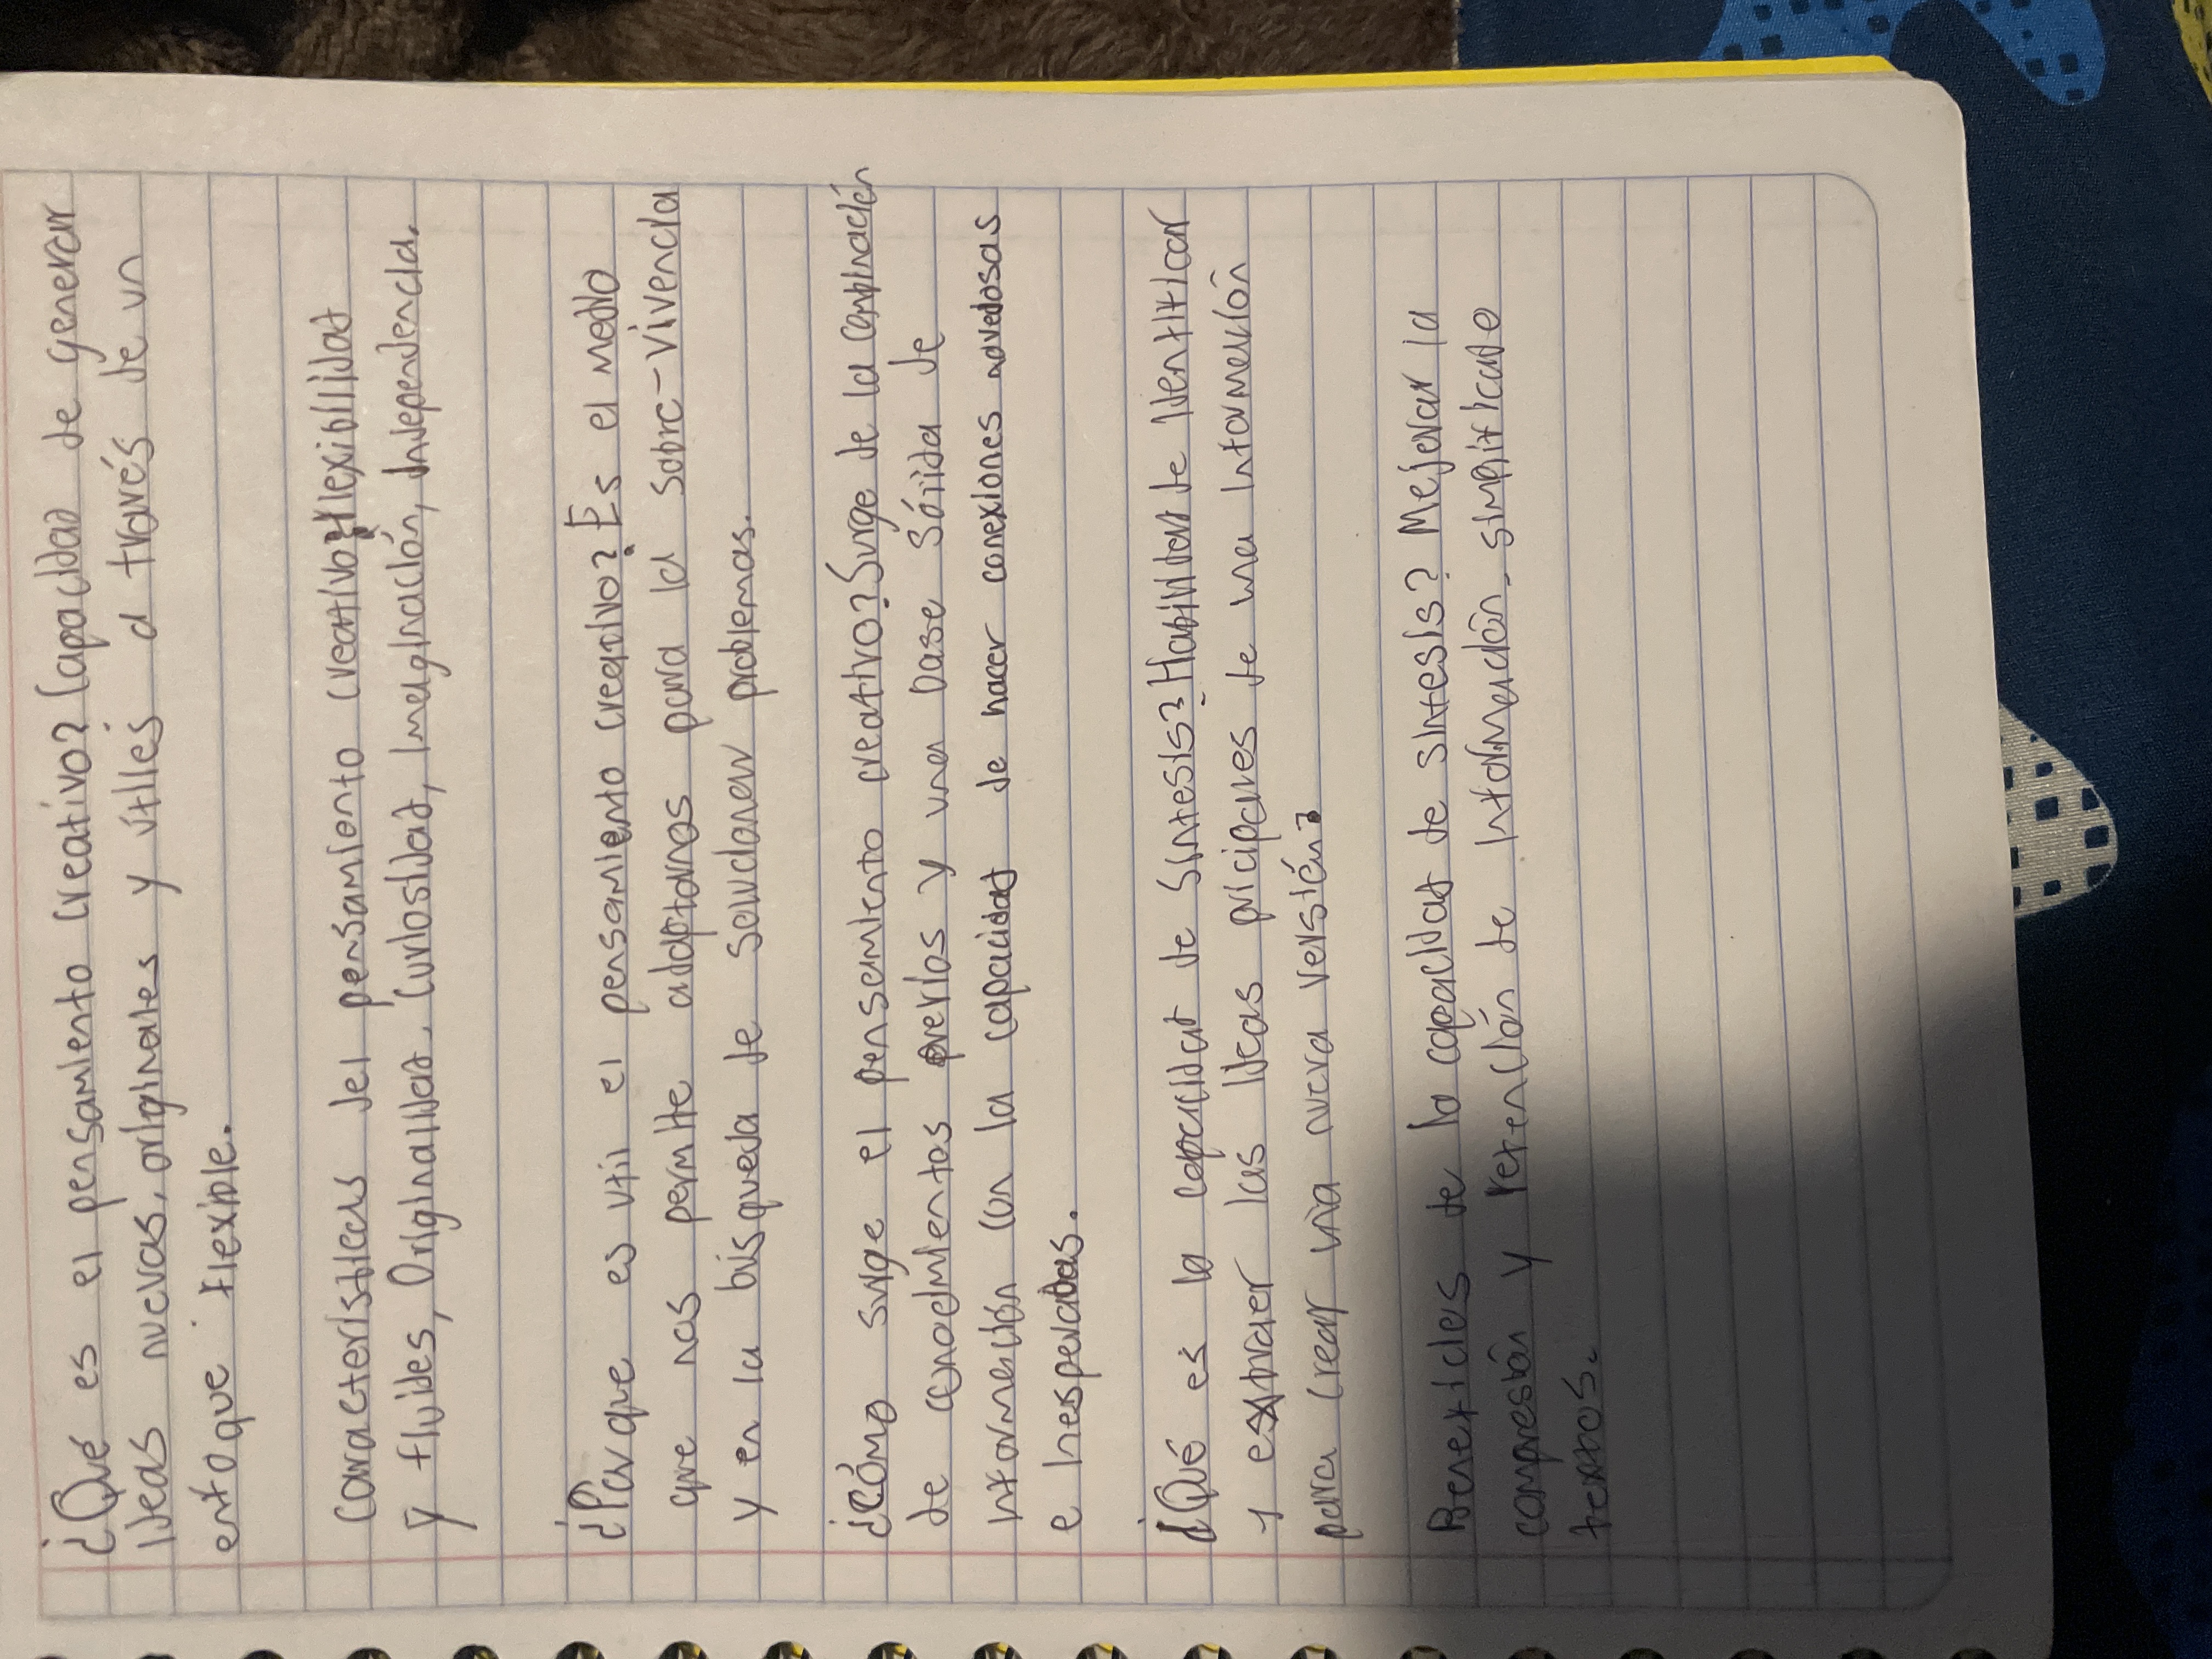 ¿Qué es el pensamiento creativo? Capacidad de generar
ideas nuevas, originales y útiles a través de un
enfoque flexible.
características del pensamiento creativo: flexibilidad
y fluides, Originalidad, Curiosidad, Imaginación, Independencia.
¿Par que es util el pensamiento creativo? Es el modo
que nos permite adaptarnos para la sobre-vivencia
y en la búsqueda de solucionar problemas.
¿cómo surge el pensamiento creativo? Surge de la conbinación
de conocimientos previos y una base sólida de
información con la capacidad de hacer conexiones novedosas
e inesperadas.
¿Qué es la capacidad de sintesis? Habilidad de identificar
y extraer las ideas pricipales de una información
para crear una nueva versión?
Beneficios de la capacidad de sintesis? Mejorar la
compresión y retención de información, simplificado
textos.